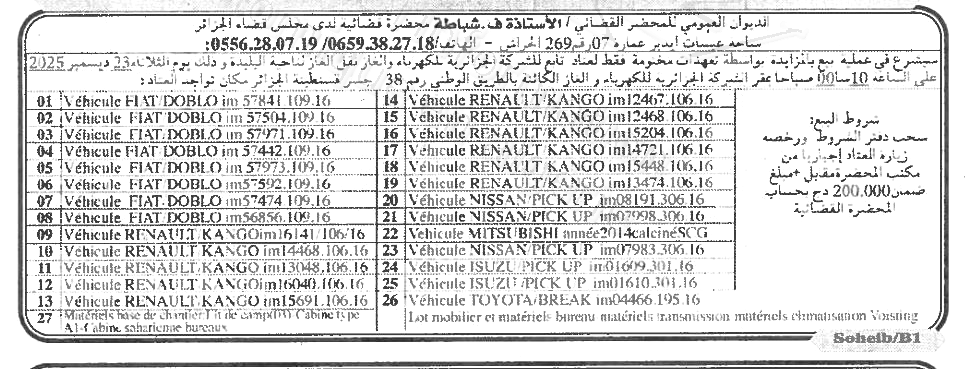 الديوان العمومي للمحضر القضائي / الأستاذة ف.شباطة محضرة قضائية لدى مجلس قضاء الجزائر
ساحة عيسات ايدير عمارة 07رقم269 الحراش - الهاتف/0659.38.27.18/ 0556.28.07.19:
سيشرع في عملية بيع بالمزايدة بواسطة تعهدات مختومة فقط لعتاد تابع للشركة الجزائرية للكهرباء والغاز نقل الغاز لناحية البليدة و ذلك يوم الثلاثاء23 ديسمبر 2025
على الساعة 10سا00 صباحا بمقر الشركة الجزائرية للكهرباء و الغاز الكائنة بالطريق الوطني رقم 38 جسر قسنطينة الجزائر مكان تواجد العتاد:
01 Véhicule FIAT/DOBLO im 57841.109.16
02 Véhicule FIAT/DOBLO im 57504.109.16
03 Véhicule FIAT/DOBLO im 57971.109.16
04 Véhicule FIAT/DOBLO im 57442.109.16
05 Véhicule FIAT/DOBLO im 57973.109.16
06 Véhicule FIAT/DOBLO im57592.109.16
07 Véhicule FIAT/DOBLO im57474.109.16
08 Véhicule FIAT/DOBLO im56856.109.16
09 Véhicule RENAULT/KANGOim16141/106/16
10 Véhicule RENAULT/KANGO im14468.106.16
11 Véhicule RENAULT/KANGO im13048.106.16
12 Véhicule RENAULT/KANGOim16040.106.16
13 Véhicule RENAULT/KANGO im15691.106.16
14 Véhicule RENAULT/KANGO im12467.106.16
15 Véhicule RENAULT/KANGO im12468.106.16
16 Véhicule RENAULT/KANGO im15204.106.16
17 Véhicule RENAULT/KANGO im14721.106.16
18 Véhicule RENAULT/KANGO im15448.106.16
19 Véhicule RENAULT/KANGO im13474.106.16
20 Véhicule NISSAN/PICK UP im08191.306.16
21 Véhicule NISSAN/PICK UP im07998.306.16
22 Vehicule MITSUBISHI année2014calcinéSCG
23 Véhicule NISSAN/PICK UP im07983.306.16
24 Véhicule ISUZU/PICK UP im01609.301.16
25 Véhicule ISUZU/PICK UP im01610.301.16
26 Véhicule TOYOTA/BREAK im04466.195.16
27 Matériels base de chantier Lit de camp(03) Cabine type
A1-Cabine saharienne bureaux
Lot mobilier et matériels bureau matériels transmission matériels climatisation
شروط البيع:
سحب دفتر الشروط ورخصة
زيارة العتاد إجباريا من
مكتب المحضرة مقابل +مبلغ
ضمان 200.000 دج بحساب
المحضرة القضائية
Soheib/B1